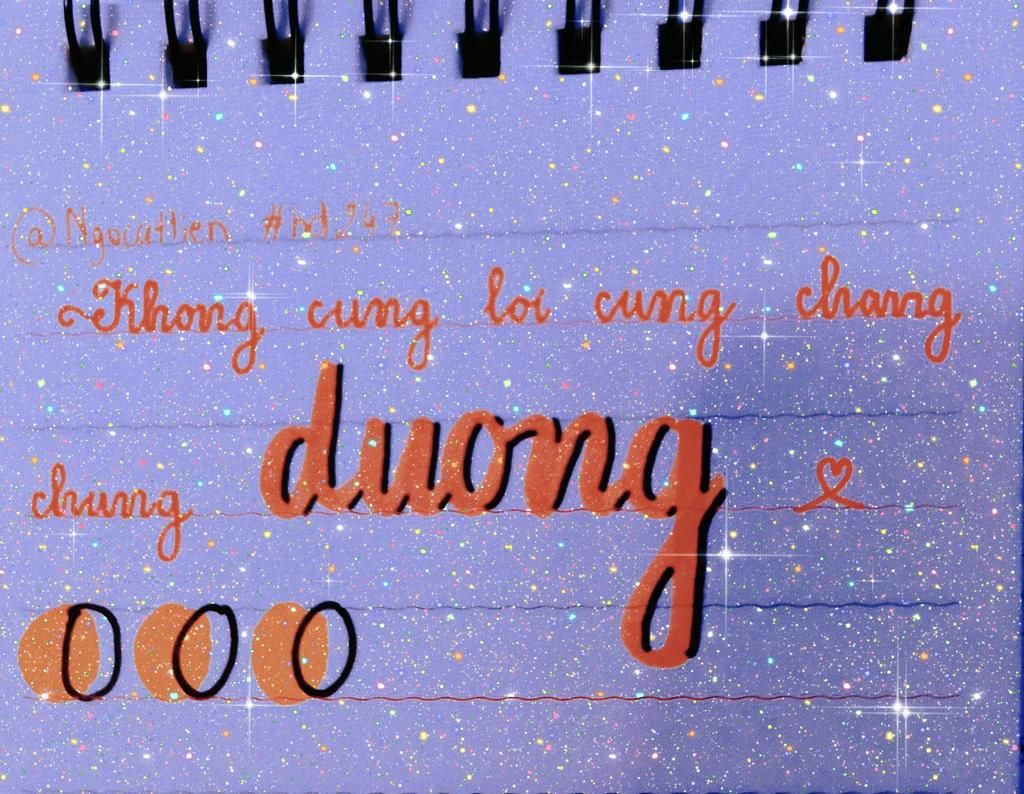 @Ngocatlien #hd.247
~Khong cung loi cung chang
chung duong